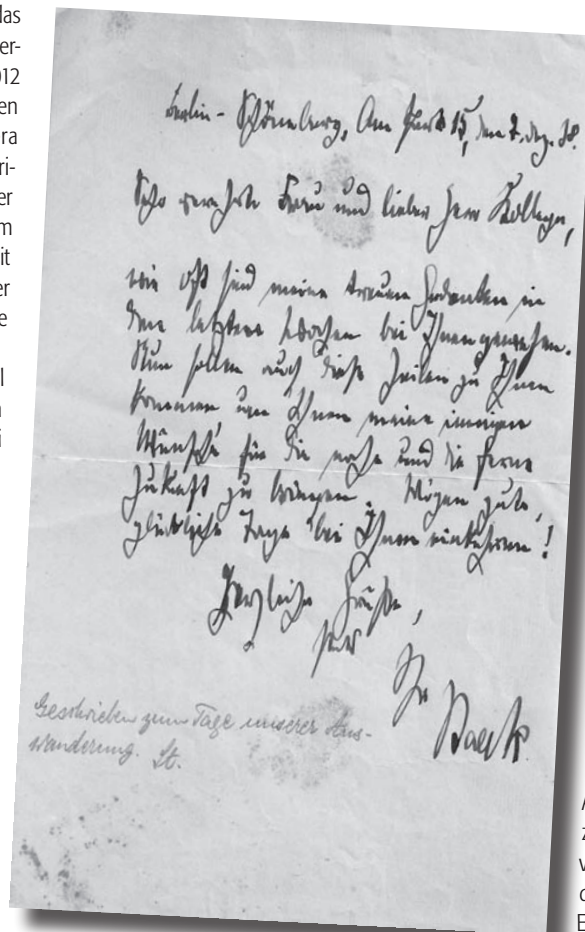 das
er-
012
en
ra
ri-
er
m
it
er
e
l
i
Berlin - Schöneberg, Am Park 15, den 7. Dez. 38.
Sehr verehrte Frau und lieber Herr Kollege,
wie oft sind meine treuen Gedanken in
den letzten Wochen bei Ihnen gewesen.
Nun sollen auch diese Zeilen zu Ihnen
kommen um Ihnen meine innigen
Wünsche für die nahe und die ferne
Zukunft zu bringen. Mögen gute,
glückliche Tage bei Ihnen einkehren!
Herzliche Grüße,
Ihr
Baeck
Geschrieben zum Tage unserer Aus-
wanderung. St.
z
v
E